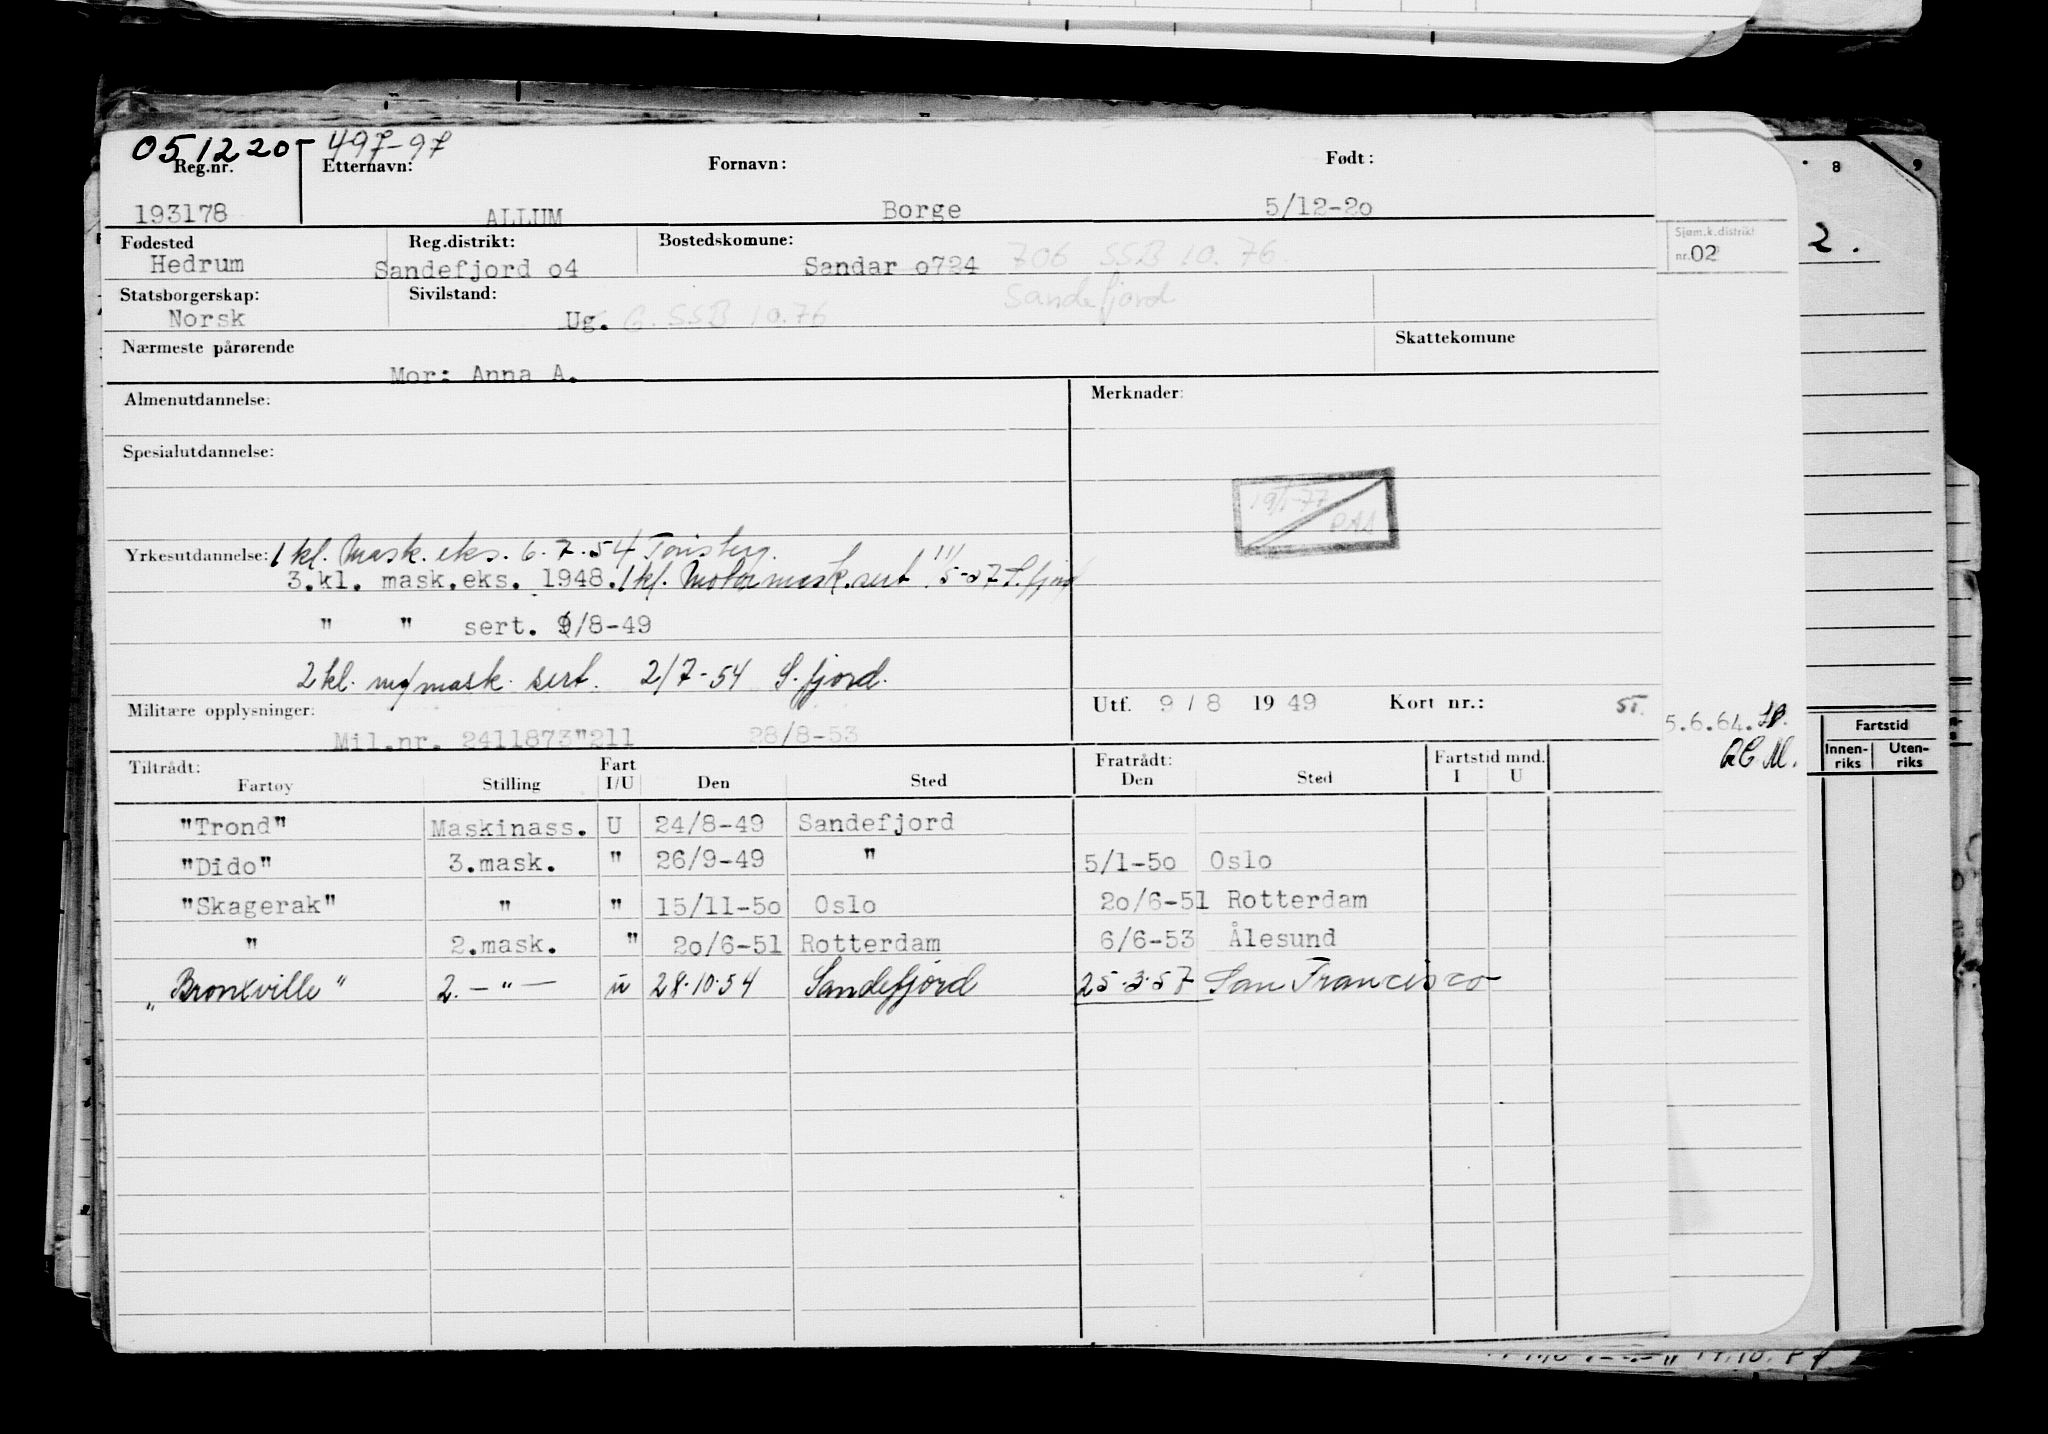 051220-49797
Reg.nr. Etternavn: Fornavn: Født:
193178 ALLUM Borge 5/12-2o
Fødested Reg.distrikt: Bostedskomune:
Hedrum Sandefjord o4 Sandar o724 706 SSB 10.76.
Statsborgerskap: Sivilstand: Sandefjord
Norsk Ug. G. SSB 10.76
Nærmeste pårørende Skattekomune
Mor: Anna A.
Almenutdannelse: Merknader:
Spesialutdannelse:
19/1-77
Yrkesutdannelse: 1 kl. Mask. eks. 6.7.54 Tønsberg.
3.kl. mask.eks. 1948. 1 kl. Motormask.sert 11/5-57 S.fjord
" " sert. 9/8-49
2 kl. m/mask. sert. 2/7-54 S.fjord.
Utf. 9 / 8 19 49 Kort nr.:
Militære opplysninger:
Mil.nr. 2411873"211 28/8-53
Tiltrådt: Fart Fratrådt: Fartstid mnd.
Fartøy Stilling I/U Den Sted Den Sted I U
"Trond" Maskinass. U 24/8-49 Sandefjord
"Dido" 3.mask. " 26/9-49 " 5/1-5o Oslo
"Skagerak" " " 15/11-5o Oslo 2o/6-51 Rotterdam
" 2.mask. " 2o/6-51 Rotterdam 6/6-53 Ålesund
"Bronxville" 2. — " — u 28.10.54 Sandefjord 25.3.57 San Francisco
Sjøm.k.distrikt
nr. 02
5.6.64.
8
2.
Fartstid
Innen-riks Uten-riks